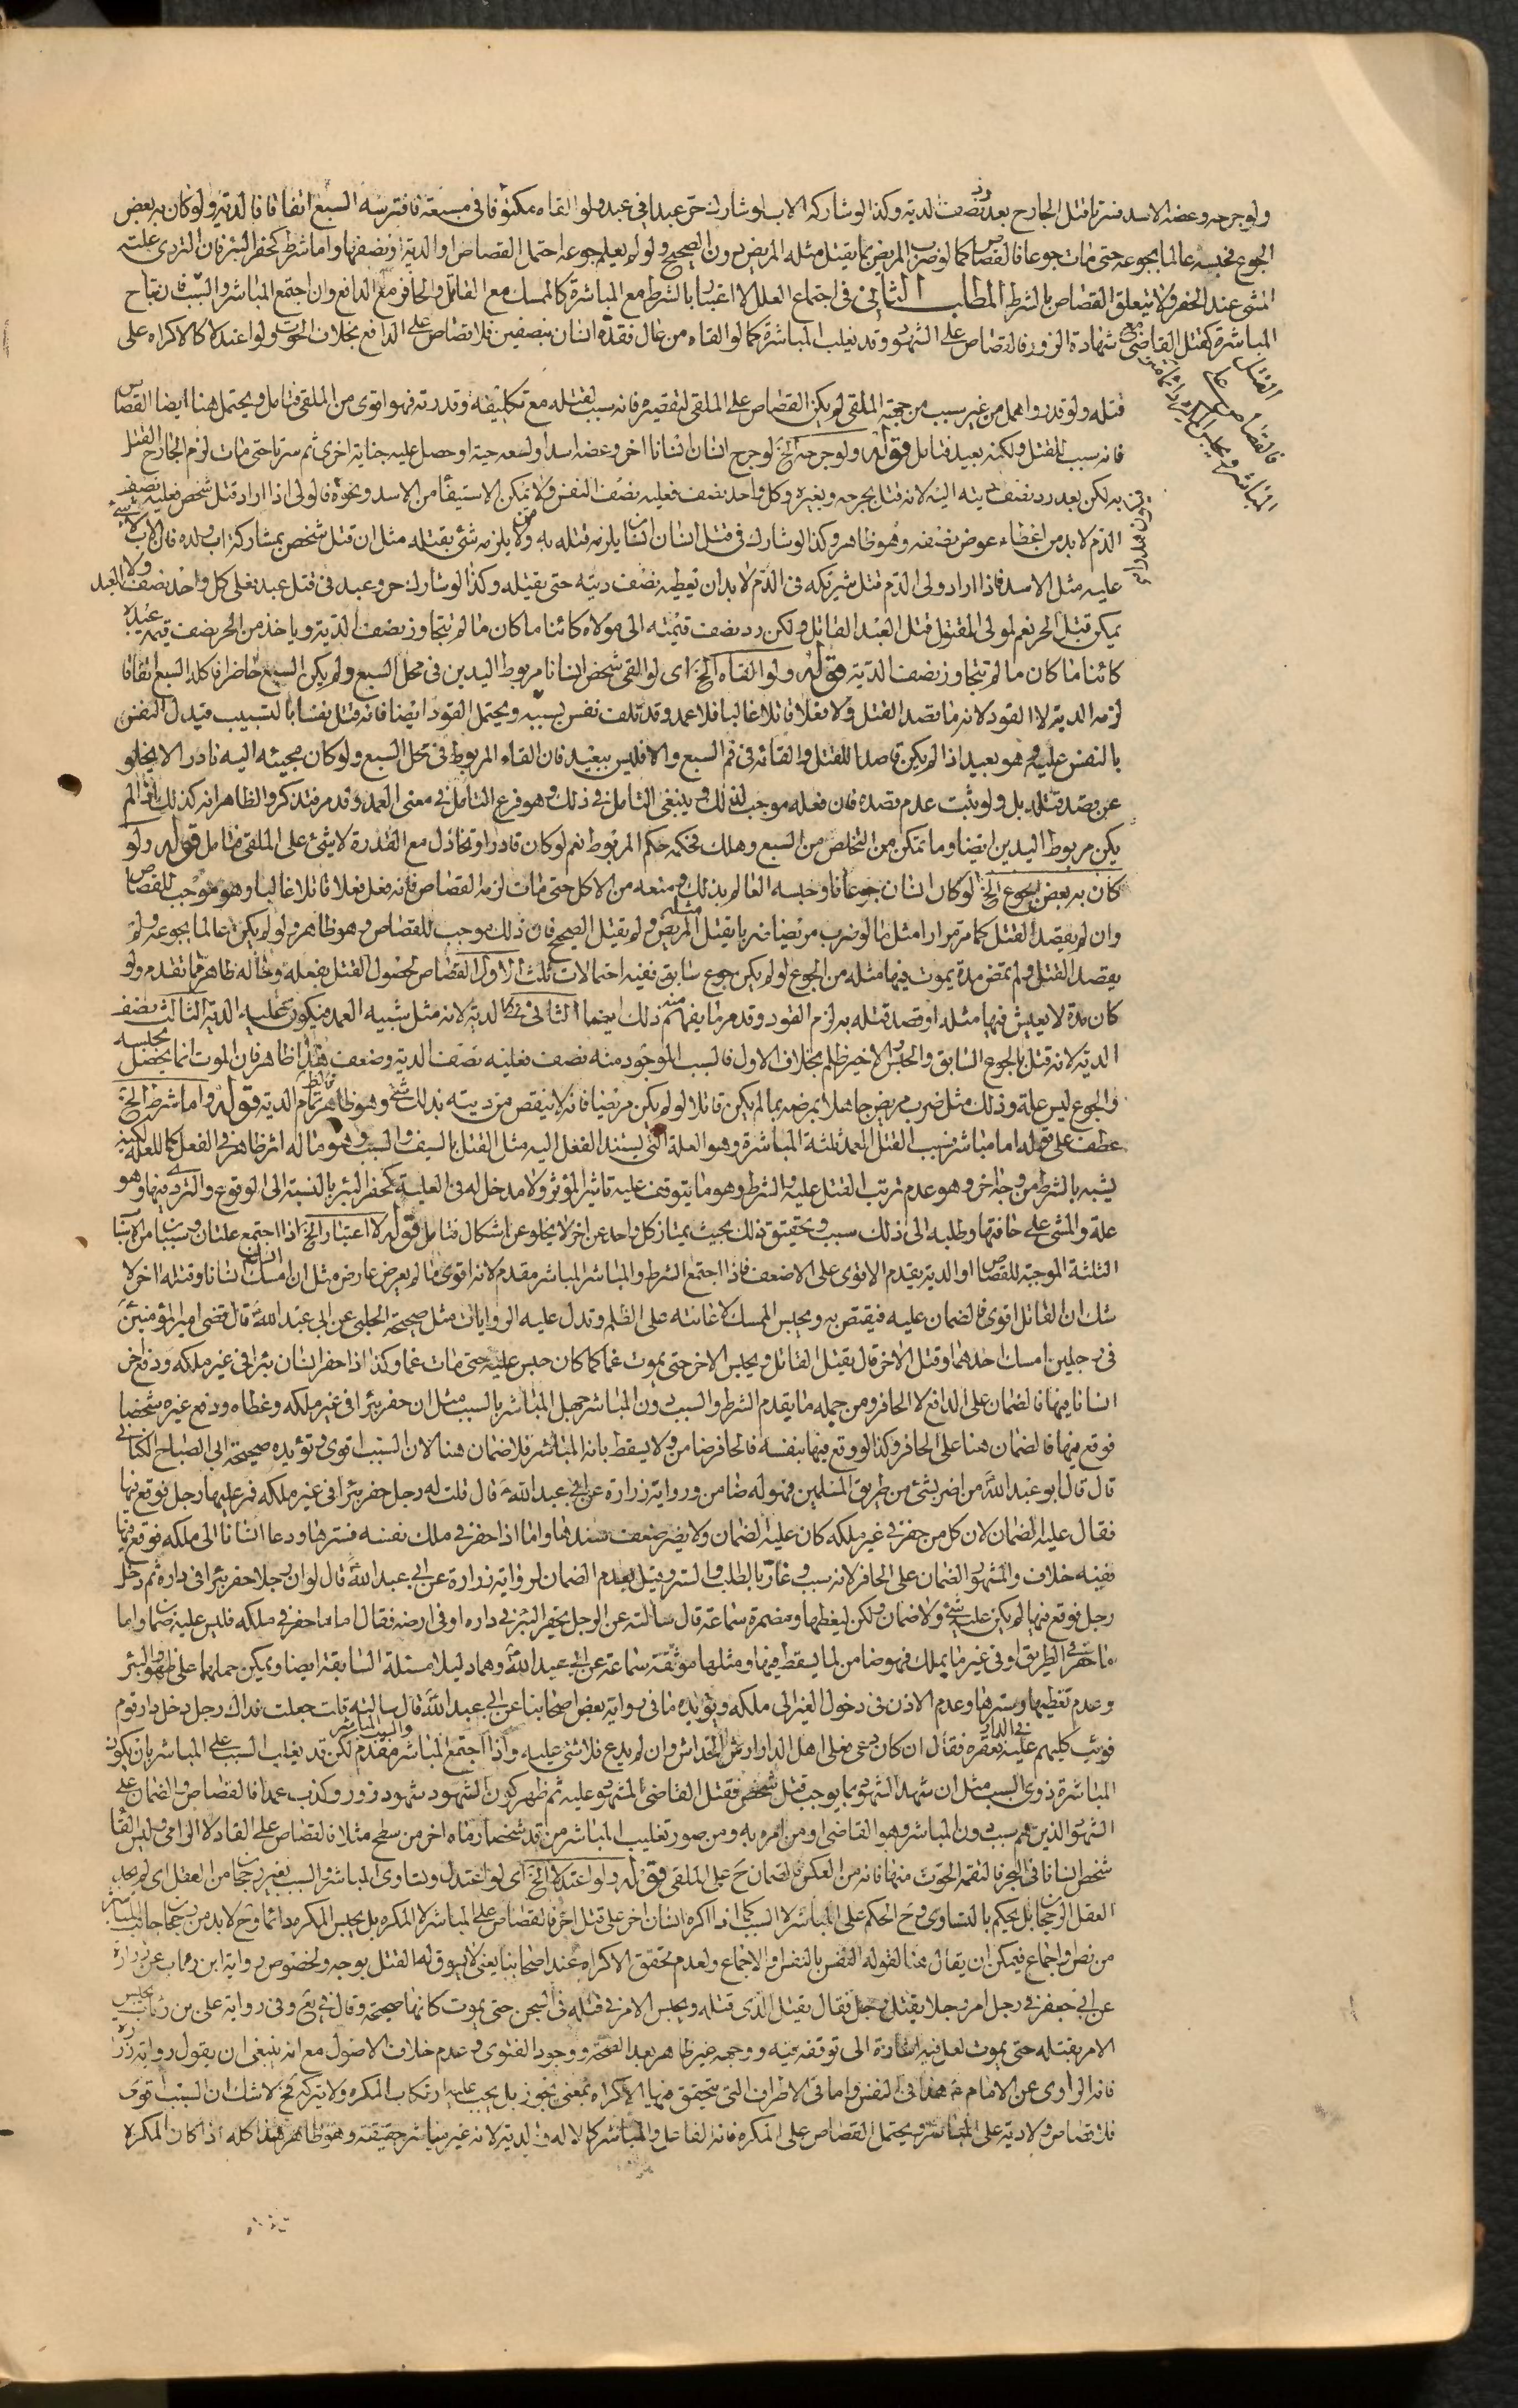 ولو جرحه وعضه الاسد فسرتا قتل الجارح بعد رد نصف الدية وكذا لو شاركه الاب او شارك حر عبدا في عبد ولو القاه مكتوفا في مسبعة فافترسه السبع اتفاقا فالدية ولو كان به بعض
الجوع فحبسه عالما بجوعه حتى مات جوعا فالقصاص كما لو ضرب المريض بما يقتل مثله المريض دون الصحيح ولو لم يعلم جوعه احتمل القصاص او الدية او نصفها واما شرط كحفر البئر فان التردي علته
المشي عند الحفر ولا يتعلق القصاص بالشرط المطلب الثاني في اجتماع العلل لا اعتبار بالشرط مع المباشرة كالممسك مع القاتل والحافر مع الدافع وان اجتمع المباشر والسبب فان
المباشرة كقتل القاضي مع شهادة الزور فالقصاص على الشهود وقد يغلب المباشرة كما لو القاه من عال فقده انسان بنصفين فلا قصاص على الدافع بخلاف الحوت ولو اعتدلا كالاكراه على
القتل فالقصاص على المباشر ويحبس الامر دائما
قتله ولو قدر واهمل من غير سبب من جهة الملقي لم يكن القصاص على الملقي لتقصيره فانه سبب لقتله مع تكليفه وقدرته فهو اقوى من الملقي فتامل ويحتمل هنا ايضا القصاص
فانه سبب للقتل ولكنه بعيد فتامل قوله ولو جرحه الخ لو جرح انسان انسانا اخر وعضه اسد او لسعه حية او حصل عليه جناية اخرى ثم سرتا حتى مات لزم الجارح القتل
به لكن بعد رد نصف ديته اليه لانه قتل بجرحه وبغيره وكل واحد نصف فعليه نصف النفس ولا يمكن الاستيفاء من الاسد ونحوه فالولي اذا اراد قتل شخص فعليه نصف
الدم لا بد من اعطاء عوض نصفه وهو ظاهر وكذا لو شارك في قتل انسان انسانا يلزمه قتله به من لا يلزمه شئ بقتله مثل ان قتل شخص بمشاركة اب ولده فان الاب لا شئ
عليه مثل الاسد فاذا اراد ولي الدم قتل شريكه في الدم لا بد ان يعطيه نصف ديته حتى يقتله وكذا لو شارك حر وعبد في قتل عبد فعلى كل واحد نصف العبد ولا
يمكن قتل الحر نعم لمولى المقتول قتل العبد القاتل ولكن رد نصف قيمته الى مولاه كائنا ما كان ما لم يتجاوز نصف الدية وياخذ من الحر نصف قيمة عبده
كائنا ما كان ما لم يتجاوز نصف الدية قوله ولو القاه الخ اى لو القى شخص انسانا مربوط اليدين في محل السبع ولم يكن السبع حاضرا فاكله السبع اتفاقا
لزمه الدية لا القود لانه ما قصد القتل ولا فعلا قاتلا غالبا فلا عمد وقد تلفت نفس بسببه ويحتمل القود ايضا فانه قتل نفسا بالتسبيب فيدل النفس
بالنفس عليه وهو بعيد اذا لم يكن قاصدا للقتل والقائه في فم السبع والا فليس ببعيد فان القاء المربوط في محل السبع ولو كان مجيئه اليه نادرا لا يخلو
عن قصد قتله بل ولو يثبت عدم قصده فان فعله موجب لذلك وينبغي التامل في ذلك وهو فرع التامل في معنى العمد وقد مر فتذكر والظاهر انه كذلك اذا لم
يكن مربوط اليدين ايضا وما تمكن من التخلص من السبع وهلك فحكمه حكم المربوط نعم لو كان قادرا وتخاذل مع القدرة لا شئ على الملقي فتامل قوله ولو
كان به بعض الجوع الخ لو كان انسان جوعانا وحبسه العالم بذلك ومنعه من الاكل حتى مات لزمه القصاص فانه فعل فعلا قاتلا غالبا وهو موجب للقصاص
وان لم يقصد القتل كما مر مرارا مثل ما لو ضرب مريضا ضربا يقتل مثله المريض ولم يقتل الصحيح فان ذلك موجب للقصاص وهو ظاهر ولو لم يكن عالما بجوعه ولم
يقصد القتل ولم تمض مدة يموت فيها مثله من الجوع لو لم يكن جوع سابق ففيه احتمالات ثلث الاول القصاص لحصول القتل بفعله وحاله ظاهر مما تقدم ولو
كان مدة لا يعيش فيها مثله او قصد قتله به لزم القود وقد مر ما يفهم منه ذلك ايضا الثاني الدية لانه مثل شبيه العمد فيكون عليه الدية الثالث نصف
الدية لانه قتل بالجوع السابق والحبس الاخير ظلم بخلاف الاول فالسبب الموجود منه نصف فعليه نصف الدية وضعف هذا ظاهر فان الموت انما يحصل بحبسه
والجوع ليس علة وذلك مثل ضرب مريض جاهلا بمرضه بما لم يكن قاتلا لو لم يكن مريضا فانه لا ينقص من ديته بذلك شئ وهو ظاهر تمام الدية قوله واما شرط الخ
عطف على قوله اما مباشر فسبب القتل العمد ثلثة المباشرة وهو العلة التي يستند الفعل اليه مثل القتل بالسيف والسبب وهو ما له اثر ظاهر في الفعل كما للعلة لكنه
يشبه بالشرط من وجه اخر وهو عدم ترتب القتل عليه والشرط وهو ما يتوقف عليه تاثير المؤثر ولا مدخل له في العلية كحفر البئر بالنسبة الى الوقوع والتردي فيها وهو
علة والمشي على حافتها وطلبه الى ذلك سبب وتحقيق ذلك بحيث يمتاز كل واحد عن اخر لا يخلو عن اشكال فتامل قوله لا اعتبار الخ اذا اجتمع علتان وسببان من الاسباب
الثلثة الموجبة للقصاص او الدية يقدم الاقوى على الاضعف فاذا اجتمع الشرط والمباشر المباشر مقدم لانه اقوى ما لم يعرض عارض مثل ان امسك انسان انسانا وقتله اخر لا
شك ان القاتل اقوى فالضمان عليه فيقتص به ويحبس الممسك لاعانته على الظلم وتدل عليه الروايات مثل صحيحة الحلبي عن ابي عبد الله قال قضى امير المؤمنين
في رجلين امسك احدهما وقتل الاخر قال يقتل القاتل ويحبس الاخر حتى يموت غما كما كان حبس عليه حتى مات غما وكذا اذا حفر انسان بئرا في غير ملكه ودفع اخر
انسانا فيها فالضمان على الدافع لا الحافر ومن جملة ما يقدم الشرط والسبب دون المباشر جهل المباشر بالسبب مثل ان حفر بئرا في غير ملكه وغطاه ودفع غيره شخصا
فوقع فيها فالضمان هنا على الحافر وكذا لو وقع فيها بنفسه فالحافر ضامن ولا يسقط بانه المباشر فلا ضمان هنا لان السبب اقوى وتؤيده صحيحة ابي الصباح الكناني
قال قال ابو عبد الله من اضر بشئ من طريق المسلمين فهو له ضامن ورواية زرارة عن ابي عبد الله قال قلت له رجل حفر بئرا في غير ملكه فمر عليها رجل فوقع فيها
فقال عليه الضمان لان كل من حفر في غير ملكه كان عليه الضمان ولا يضر ضعف سندها واما اذا حفر في ملك نفسه فسترها ودعا انسانا الى ملكه فوقع فيها
ففيه خلاف والمشهور الضمان على الحافر لانه سبب وغار بالطلب والستر وقيل بعدم الضمان لرواية زرارة عن ابي عبد الله قال لو ان رجلا حفر بئرا في داره ثم دخل
رجل فوقع فيها لم يكن عليه شئ ولا ضمان ولكن ليغطها ومضمرة سماعة قال سالته عن الرجل يحفر البئر في داره او في ارضه فقال اما ما حفر في ملكه فليس عليه ضمان واما
ما حفر في الطريق او في غير ما يملك فهو ضامن لما يسقط فيها ومثلها موثقة سماعة عن ابي عبد الله وهما دليلا مسئلة السابقة ايضا ويمكن حملهما على ظهور البئر
وعدم تغطيها وسترها وعدم الاذن في دخول الغير الى ملكه ويؤيده ما في رواية بعض اصحابنا عن ابي عبد الله قال سالته قلت جعلت فداك رجل دخل دار قوم
فوثب كلبهم عليه في الدار فعقره فقال ان كان دعي فعلى اهل الدار ارش الخداش وان لم يدع فلا شئ عليه واذا اجتمع المباشر والسبب المباشر مقدم لكن قد يغلب السبب على المباشر بان يكون
المباشرة ذوي السبب مثل ان شهد الشهود بما يوجب قتل شخص فقتل القاضي المشهود عليه ثم ظهر كون الشهود شهود زور وكذب عمدا فالقصاص والضمان على
الشهود الذين هم سبب دون المباشر وهو القاضي او من امره به ومن صور تغليب المباشر من قد شخصا رماه اخر من سطح مثلا فالقصاص على القاد لا الرامي وليس القاء
شخص انسانا في البحر فالتقمه الحوت منها فانه من العكس فالضمان ح على الملقي قوله ولو اعتدلا الخ اى لو اعتدل وتساوى المباشر والسبب بغير رجحان من العقل اى لم يجد
العقل الرجحان بل يحكم بالتساوي وح الحكم على المباشر لا السبب كما اذا اكره انسان اخر على قتل اخر فالقصاص على المباشر لا المكره بل يحبس المكره دائما وح لا بد من رجحان جانب المباشر
من نص واجماع فيمكن ان يقال هنا لقوله النفس بالنفس والاجماع ولعدم تحقق الاكراه عند اصحابنا يعني لا يسوق له القتل بوجه ولخصوص رواية ابن رئاب عن زرارة
عن ابي جعفر في رجل امر رجلا بقتل رجل فقال يقتل الذي قتله ويحبس الامر في قتله في السجن حتى يموت كانها صحيحة وقال في يع وفي رواية علي بن رئاب يحبس
الامر بقتله حتى يموت لعل فيه اشارة الى توقفه فيه ووجهه غير ظاهر بعد الصحة ووجود الفتوى وعدم خلاف الاصول مع انه ينبغي ان يقول رواية زرارة
فانه الراوي عن الامام هذا في النفس واما في الاطراف التي يتحقق فيها الاكراه بمعنى يجوز بل يجب عليه ارتكاب المكره ولا يتركه فح لا شك ان السبب اقوى
فلا قصاص ولا دية على المباشر ويحتمل القصاص على المكره فانه الفاعل والمباشر كالالة والدية لانه غير مباشر حقيقة وهو ظاهر هذا كله اذا كان المكره